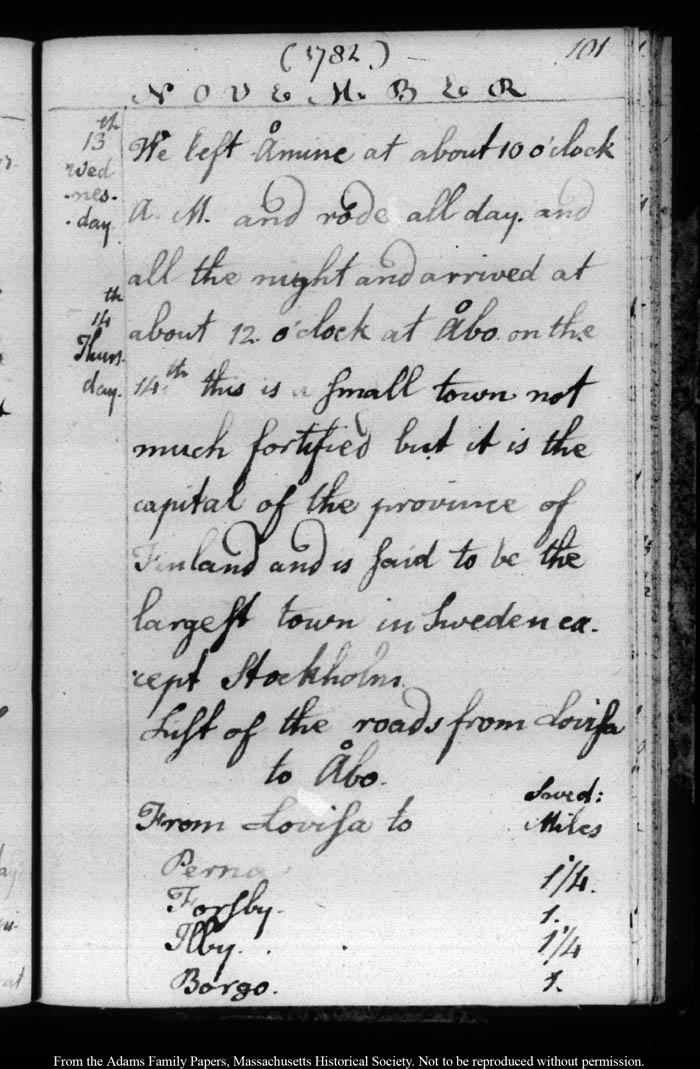 (1782.) 101
NOVEMBER
13th
Wed
-nes-
-day
We left Åmine at about 10 o'clock
A. M. and rode all day. and
all the night and arrived at
14th
Thurs-
day.
about 12. o'clock at Åbo on the
14th. this is a small town not
much fortified but it is the
capital of the province of
Finland and is said to be the
largest town in Sweden ex-
cept Stockholm.
List of the roads from Lovisa
to Åbo.
From Lovisa to Swed: Miles
Perna 1 1/4.
Forsby. 1.
Ilby. 1 1/4
Borgo. 1.
From the Adams Family Papers, Massachusetts Historical Society. Not to be reproduced without permission.